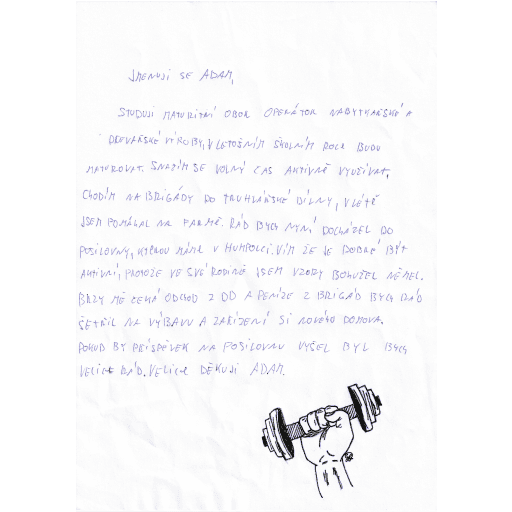 JMENUJI SE ADAM,
STUDUJI MATURITNÍ OBOR OPERÁTOR NÁBYTKÁŘSKÉ A
DŘEVAŘSKÉ VÝROBY, V LETOŠNÍM ŠKOLNÍM ROCE BUDU
MATUROVAT. SNAŽÍM SE VOLNÝ ČAS AKTIVNĚ VYUŽÍVAT,
CHODÍM NA BRIGÁDY DO TRUHLÁŘSKÉ DÍLNY, V LÉTĚ
JSEM POMÁHAL NA FARMĚ. RÁD BYCH NYNÍ DOCHÁZEL DO
POSILOVNY, KTEROU MÁME V HUMPOLCI. VÍM ŽE JE DOBRÉ BÝT
AKTIVNÍ, PROTOŽE VE SVÉ RODINĚ JSEM VZORY BOHUŽEL NEMĚL.
BRZY MĚ ČEKÁ ODCHOD Z DD A PENÍZE Z BRIGÁD BYCH RÁD
ŠETŘIL NA VÝBAVU A ZAŘÍZENÍ SI NOVÉHO DOMOVA.
POKUD BY PŘÍSPĚVEK NA POSILOVNU VYŠEL BYL BYCH
VELICE RÁD. VELICE DĚKUJI ADAM.